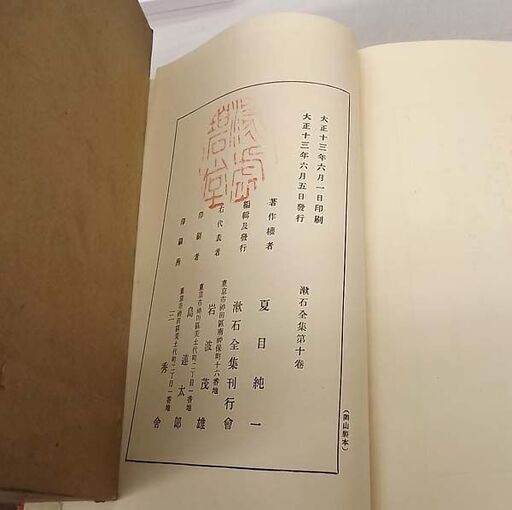 大正十三年六月一日印刷
大正十三年六月五日發行
漱石全集第十卷
著作續者
夏目純一
編輯及發行
東京市神田區南神保町十六番地
漱石全集刊行會
右代表者
岩波茂雄
印刷者
東京市神田區美土代町二丁目一番地
島連太郎
印刷所
東京市神田區美土代町二丁目一番地
三秀舍
(岡山製本)